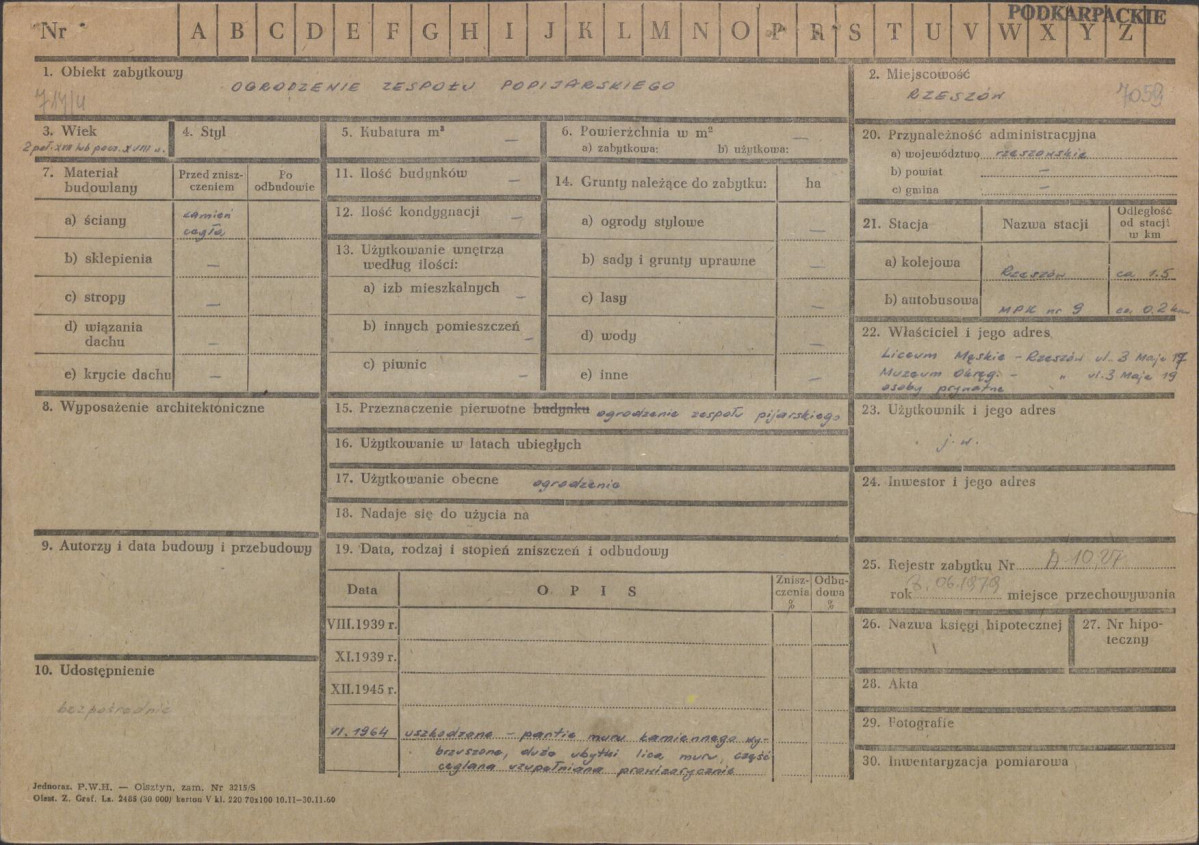 PODKARPACKIE
Nr A B C D E F G H I J K L M N O P R S T U V W X Y Z
1. Obiekt zabytkowy
OGRODZENIE ZESPOŁU POPIJARSKIEGO
2. Miejscowość
RZESZÓW
7059
3. Wiek
2 poł. XVII lub pocz. XVIII w.
4. Styl
5. Kubatura m³
—
6. Powierzchnia w m²
—
a) zabytkowa: b) użytkowa:
7. Materiał budowlany
Przed zniszczeniem
Po odbudowie
a) ściany
kamień
cegła
b) sklepienia —
c) stropy —
d) wiązania dachu —
e) krycie dachu —
8. Wyposażenie architektoniczne
9. Autorzy i data budowy i przebudowy
10. Udostępnienie
bezpośrednie
11. Ilość budynków —
12. Ilość kondygnacji —
13. Użytkowanie wnętrza według ilości:
a) izb mieszkalnych —
b) innych pomieszczeń —
c) piwnic —
14. Grunty należące do zabytku: ha
a) ogrody stylowe —
b) sady i grunty uprawne —
c) lasy —
d) wody —
e) inne —
15. Przeznaczenie pierwotne budynku ogrodzenie zespołu pijarskiego
16. Użytkowanie w latach ubiegłych
17. Użytkowanie obecne ogrodzenie
18. Nadaje się do użycia na
19. Data, rodzaj i stopień zniszczeń i odbudowy
Data
OPIS
Zniszczenia %
Odbudowa %
VIII.1939 r.
XI.1939 r.
XII.1945 r.
VI. 1964 uszkodzone - partie muru kamiennego wy-
brzuszone, duże ubytki lica muru, część
ceglana uzupełniana prowizorycznie
20. Przynależność administracyjna
a) województwo rzeszowskie
b) powiat —
c) gmina —
21. Stacja
Nazwa stacji
Odległość od stacji w km
a) kolejowa Rzeszów ca 1.5
b) autobusowa MPK nr 9 ca. 0.2 km
22. Właściciel i jego adres
Liceum Męskie - Rzeszów ul. 3 Maja 17
Muzeum Okręg. - " ul. 3 Maja 19
osoby prywatne
23. Użytkownik i jego adres
j.w.
24. Inwestor i jego adres
25. Rejestr zabytku Nr
rok miejsce przechowywania
26. Nazwa księgi hipotecznej
27. Nr hipoteczny
28. Akta
29. Fotografie
30. Inwentaryzacja pomiarowa
Jednoraz. P.W.H. — Olsztyn, zam. Nr 3215/S
Olszt. Z. Graf. Lz. 2488 (30 000) karton V kl. 220 70x100 10.11—30.11.60